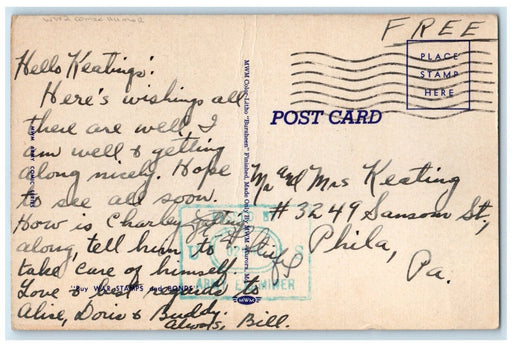 WW2 COMIC HUMOR
FREE
PLACE
STAMP
HERE
POST CARD
Hello Keatings:
Here's wishings all
there are well, I
am well & getting
along nicely. Hope
to see all soon.
How is Charley getting
along, tell him to
take care of himself.
Love & best regards to
Alice, Doris & Buddy.
Always, Bill.
Mr and Mrs Keating
#3249 Sansom St.,
Phila,
Pa.
MWM Color-Litho "Burnheem" Finished, Made Only By MWM
MWM
"Buy WAR STAMPS and BONDS"
U S
ARMY EXAMINER